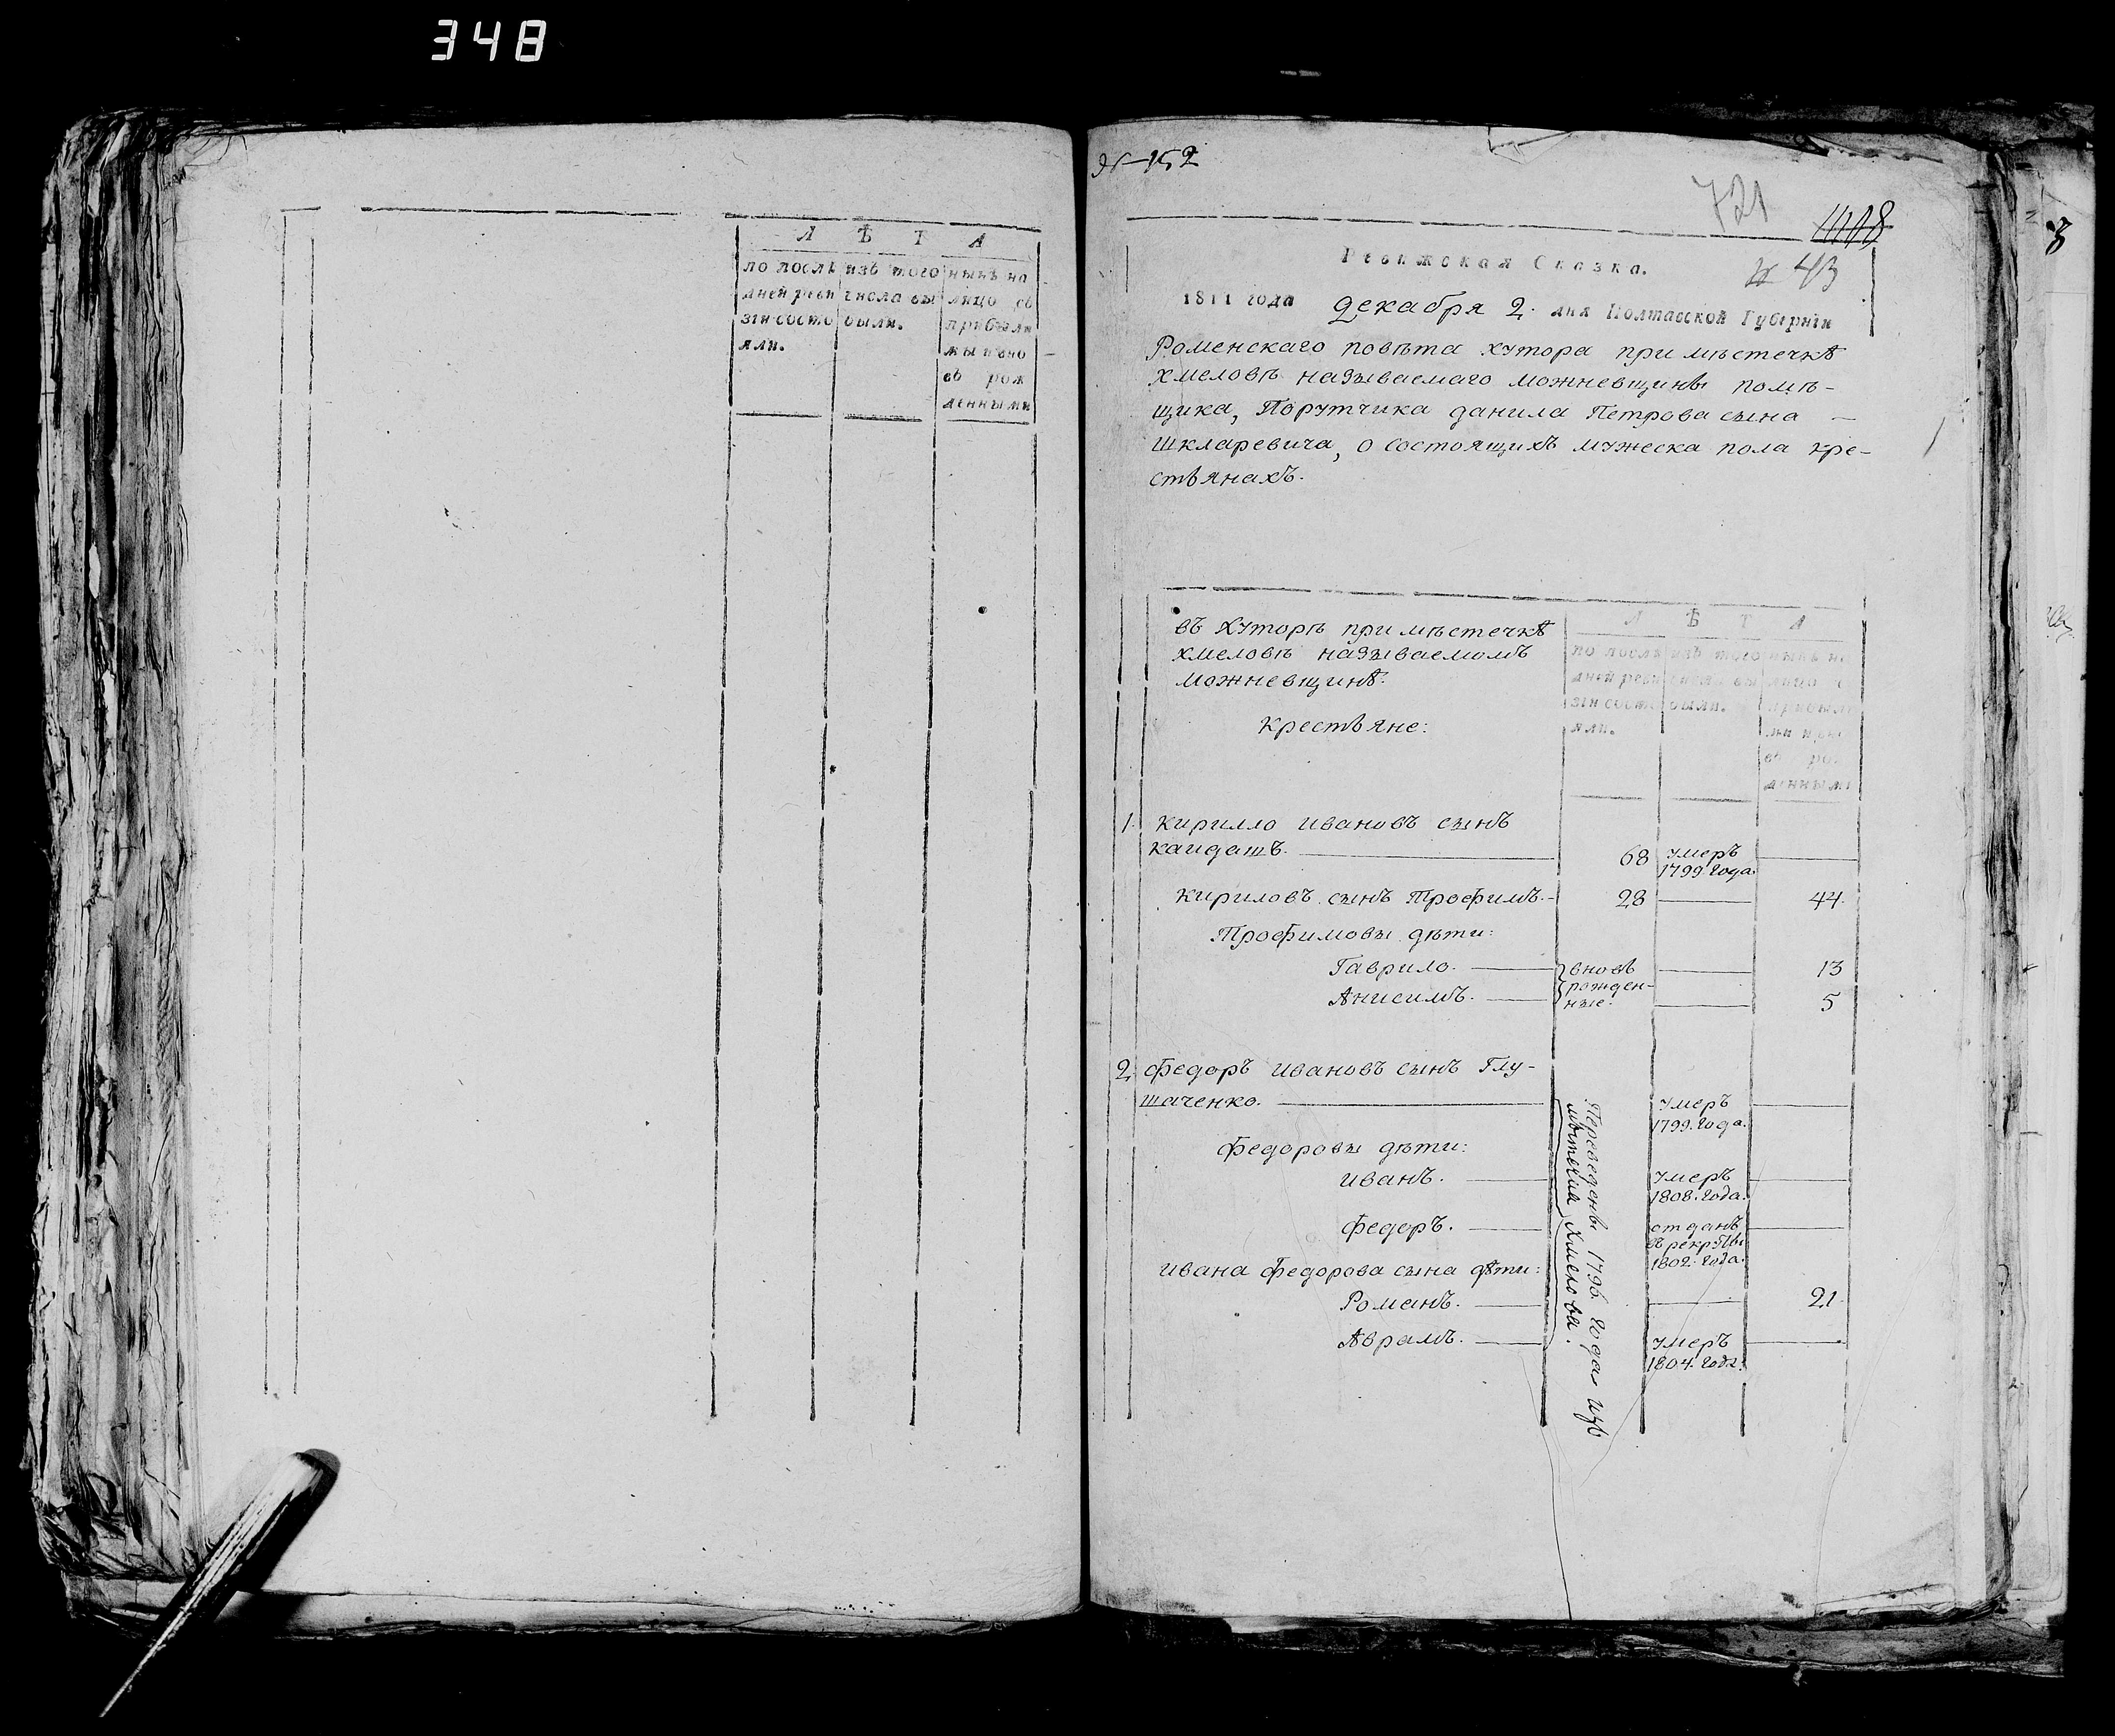 348
Л Ѣ Т А
по послѣ изъ того нынѣ на
дней реви числа вы лицо съ
зіи состо были. прибылы
яли. ми и вно
въ рож
денными
№ 152
721
1108
Ревижская Сказка.
43
1811 года декабря 2. дня Полтавской Губерніи
Роменскаго повѣта хутора при мѣстечкѣ
хмеловѣ называемаго можневщины помѣ-
щика, Порутчика данила Петрова сына
шкларевича, о состоящихъ мужеска пола кре-
стьянахъ.
въ хуторѣ при мѣстечкѣ
хмеловѣ называемомъ
можневщинѣ.
Крестьяне:
Л Ѣ Т А
по послѣ изъ того нынѣ н
дней реви числа вы лицо с
зіи состо были. прибыл
яли. ми и вн
въ ро
денными
1. кирилло ивановъ сынъ
каидашъ. 68 умеръ
1799. года.
кириловъ сынъ Трофимъ. 28 44.
Трофимовы дѣти:
Гаврило. вновь 13
рожден-
Анисимъ. ные. 5
2. федоръ ивановъ сынъ Глу-
шаченко. умеръ
1799. года.
федоровы дѣти:
иванъ. умеръ
1808. года.
федоръ. отданъ
в рекруты
1802. года.
ивана федорова сына дѣти:
Романъ. 21.
Аврамъ. умеръ
1804. года.
Переведены 1796. года изъ
мѣстечка Хмелова.
3